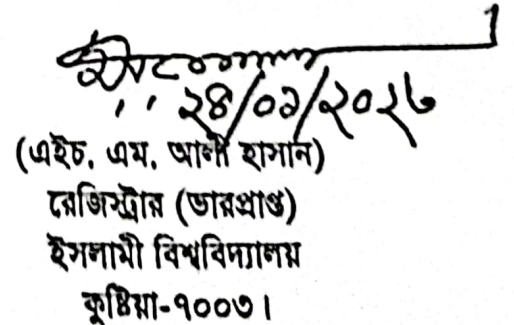 ২৪/০১/২০২৬
(এইচ. এম. আলী হাসান)
রেজিস্ট্রার (ভারপ্রাপ্ত)
ইসলামী বিশ্ববিদ্যালয়
কুষ্টিয়া-৭০০৩।